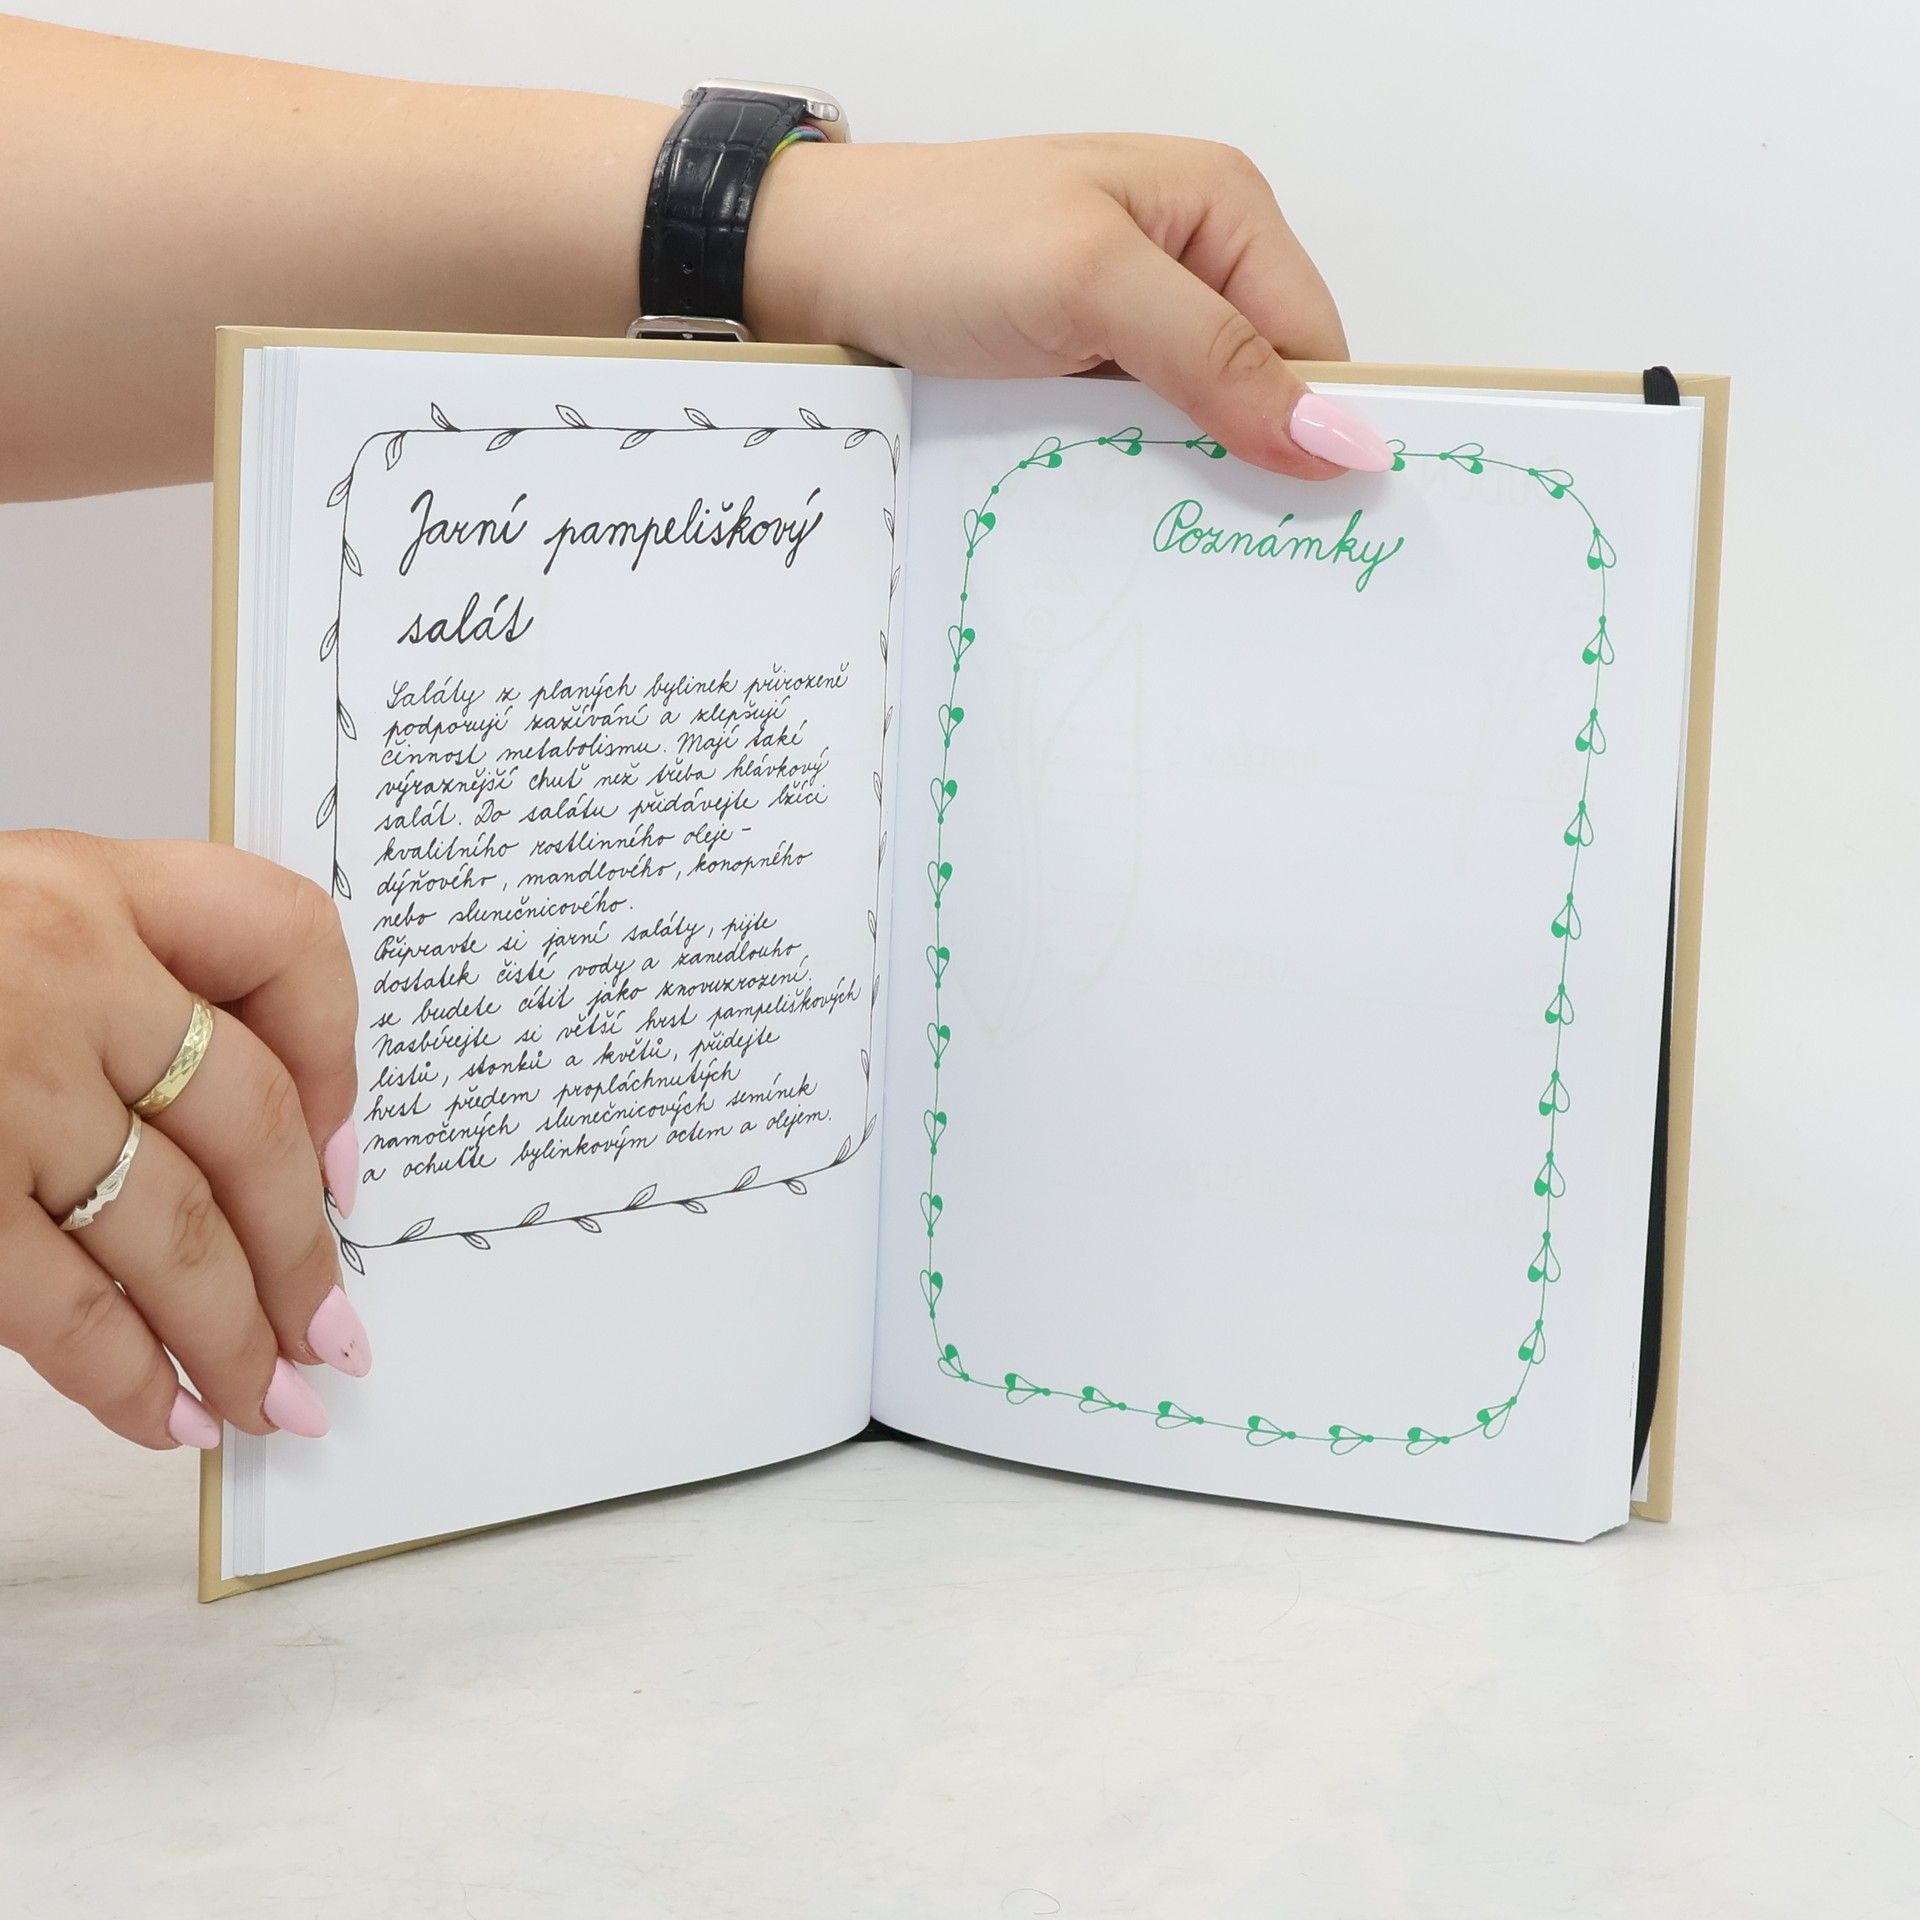 Jarní pampeliškový
salát
Saláty z planých bylinek přirozeně
podporují zažívání a zlepšují
činnost metabolismu. Mají také
výraznější chuť než třeba hlávkový
salát. Do salátu přidávejte lžíci
kvalitního rostlinného oleje -
dýňového, mandlového, konopného
nebo slunečnicového.
Připravte si jarní saláty, pijte
dostatek čisté vody a zanedlouho
se budete cítit jako znovuzrození.
Nasbírejte si větší hrst pampeliškových
listů, stonků a květů, přidejte
hrst předem propláchnutých
namočených slunečnicových semínek
a ochuťte bylinkovým octem a olejem.
Poznámky